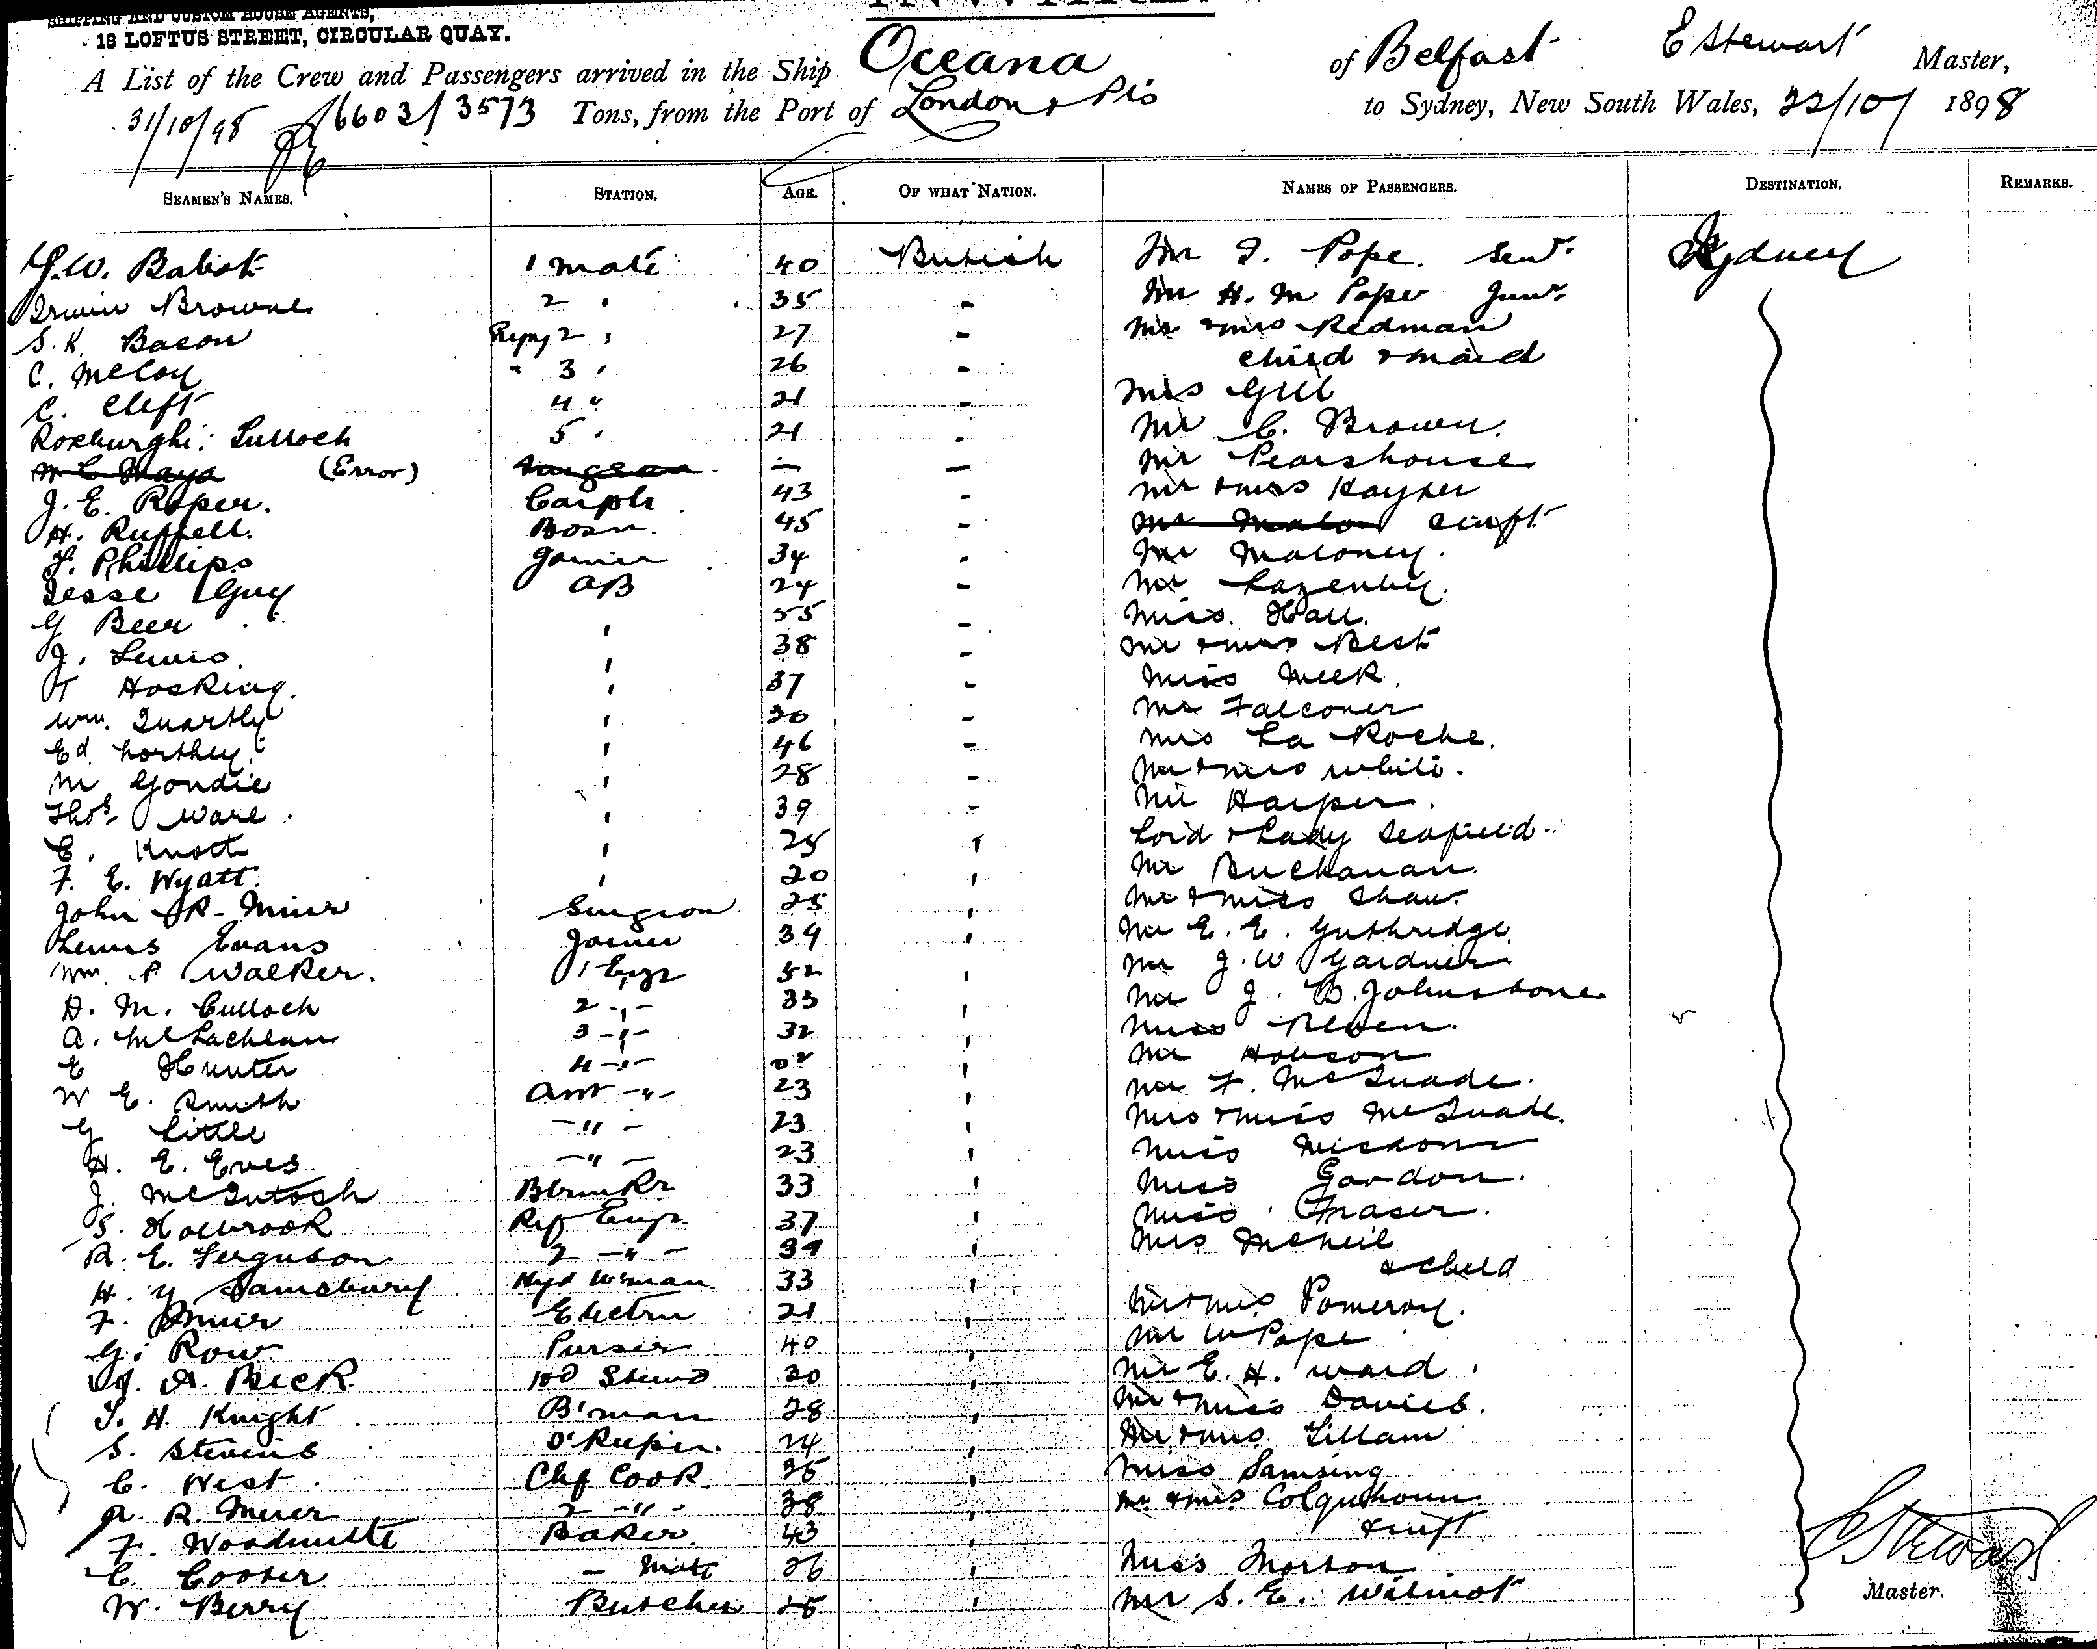 SHIPPING AND CUSTOM HOUSE AGENTS,
18 LOFTUS STREET, CIRCULAR QUAY.
A List of the Crew and Passengers arrived in the Ship Oceana of Belfast E Stewart Master,
31/10/98 6603/3573 Tons, from the Port of London & Pts to Sydney, New South Wales, 22/10/ 1898
SEAMEN'S NAMES. STATION. AGE. OF WHAT NATION. NAMES OF PASSENGERS. DESTINATION. REMARKS.
1 Mate 40 British Mr Pope Senr. Sydney
Browne 2 " 35 - Mr H. M Pope Junr.
S. K. Bacon 2 " 27 - Mr & Mrs Redman
C. McCoy " 3 " 26 - child & maid
C. Clift 4 " 21 - Mrs Gill
Roxburgh Tulloch 5 " 21 - Mr C. Brown.
(Error) Surgeon - - Mr Pearshouse
J. E. Roper. Carptr 43 - Mr & Mrs Kayser
H. Ruffell. Bosn. 45 - & inft
F. Phillips Joiner 34 - Mr Maloney.
Jesse Guy AB 24 - Mr Lazenby.
G Beer " 55 - Miss Hall.
J. Lewis. " 38 - Mr & Mrs Best
T Hosking. " 37 - Miss Meek.
Wm. Quartly " 20 - Mr Falconer
Ed. Northey " 46 - Mrs La Roche.
M Goudie " 28 - Mr & Mrs White.
Thos. Ware. " 39 - Mr Harper.
E. Knott " 25 " Lord & Lady Seafield.
F. E. Wyatt. " 20 " Mr Buchanan.
John R. Muir Surgeon 25 " Mr & Miss Shaw.
Lewis Evans Joiner 39 " Mr E. E. Guthridge.
Wm. P Walker. 1 Engr 52 " Mr J. W Gardner
D. M. Culloch 2 -"- 35 " Mr J. B. Johnstone
A. McLachlan 3 -"- 32 " Miss
E Hunter 4 -"- " Mr Hobson
W E. Smith -"- 23 " Mr F. McQuade.
G Little -"- 23 " Mrs & Miss McQuade.
H. E. Eves -"- 23 " Miss
J. McIntosh 33 " Miss Gordon.
S. Holbrook Rif Engr 37 " Miss Fraser.
R. E. Ferguson 2 -"- 39 " Mrs McNeil
H. Y Sainsbury 33 " & child
F. Muir Electrn 21 " Mr & Mrs Pomeroy.
G. Row Purser 40 " Mr W Pope
A. Beck 30 " Mr E. H. Ward.
T. H. Knight B'man 28 " Mr & Miss Davies.
S. Stevens 24 " Mr & Mrs Tillam
C. West Chf Cook 35 " Miss
R. R. Muir 2 -"- 38 " Mr & Mrs Colquhoun
F. Baker. 43 " & inft
C. Cooter - Mate 26 " Miss Morton
W. Berry Butcher 25 " Mr S. E. Wilmot
E Stewart
Master.